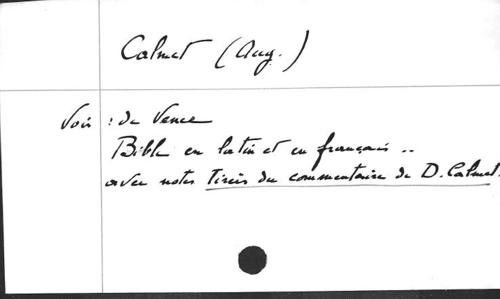 Calmet (Aug.)
Voir : de Vence
Bible en latin et en français ..
avec notes tirées du commentaire de D. Calmet.